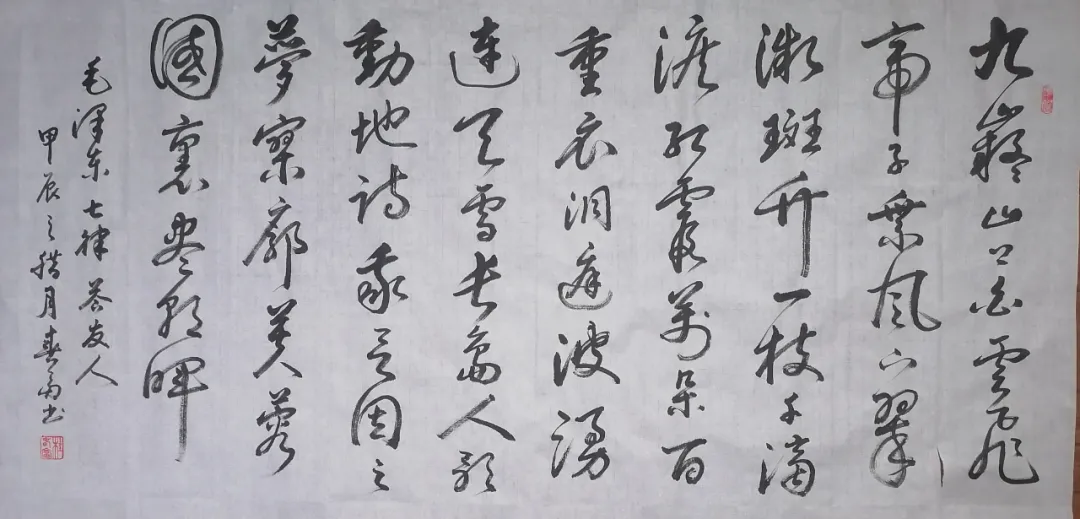 九嶷山上白雲飛
帝子乘風下翠
微斑竹一枝千滴
淚紅霞萬朵百
重衣洞庭波湧
連天雪長島人歌
動地詩我欲因之
夢寥廓芙蓉
國裏盡朝暉
毛泽东七律答友人
甲辰之腊月春书